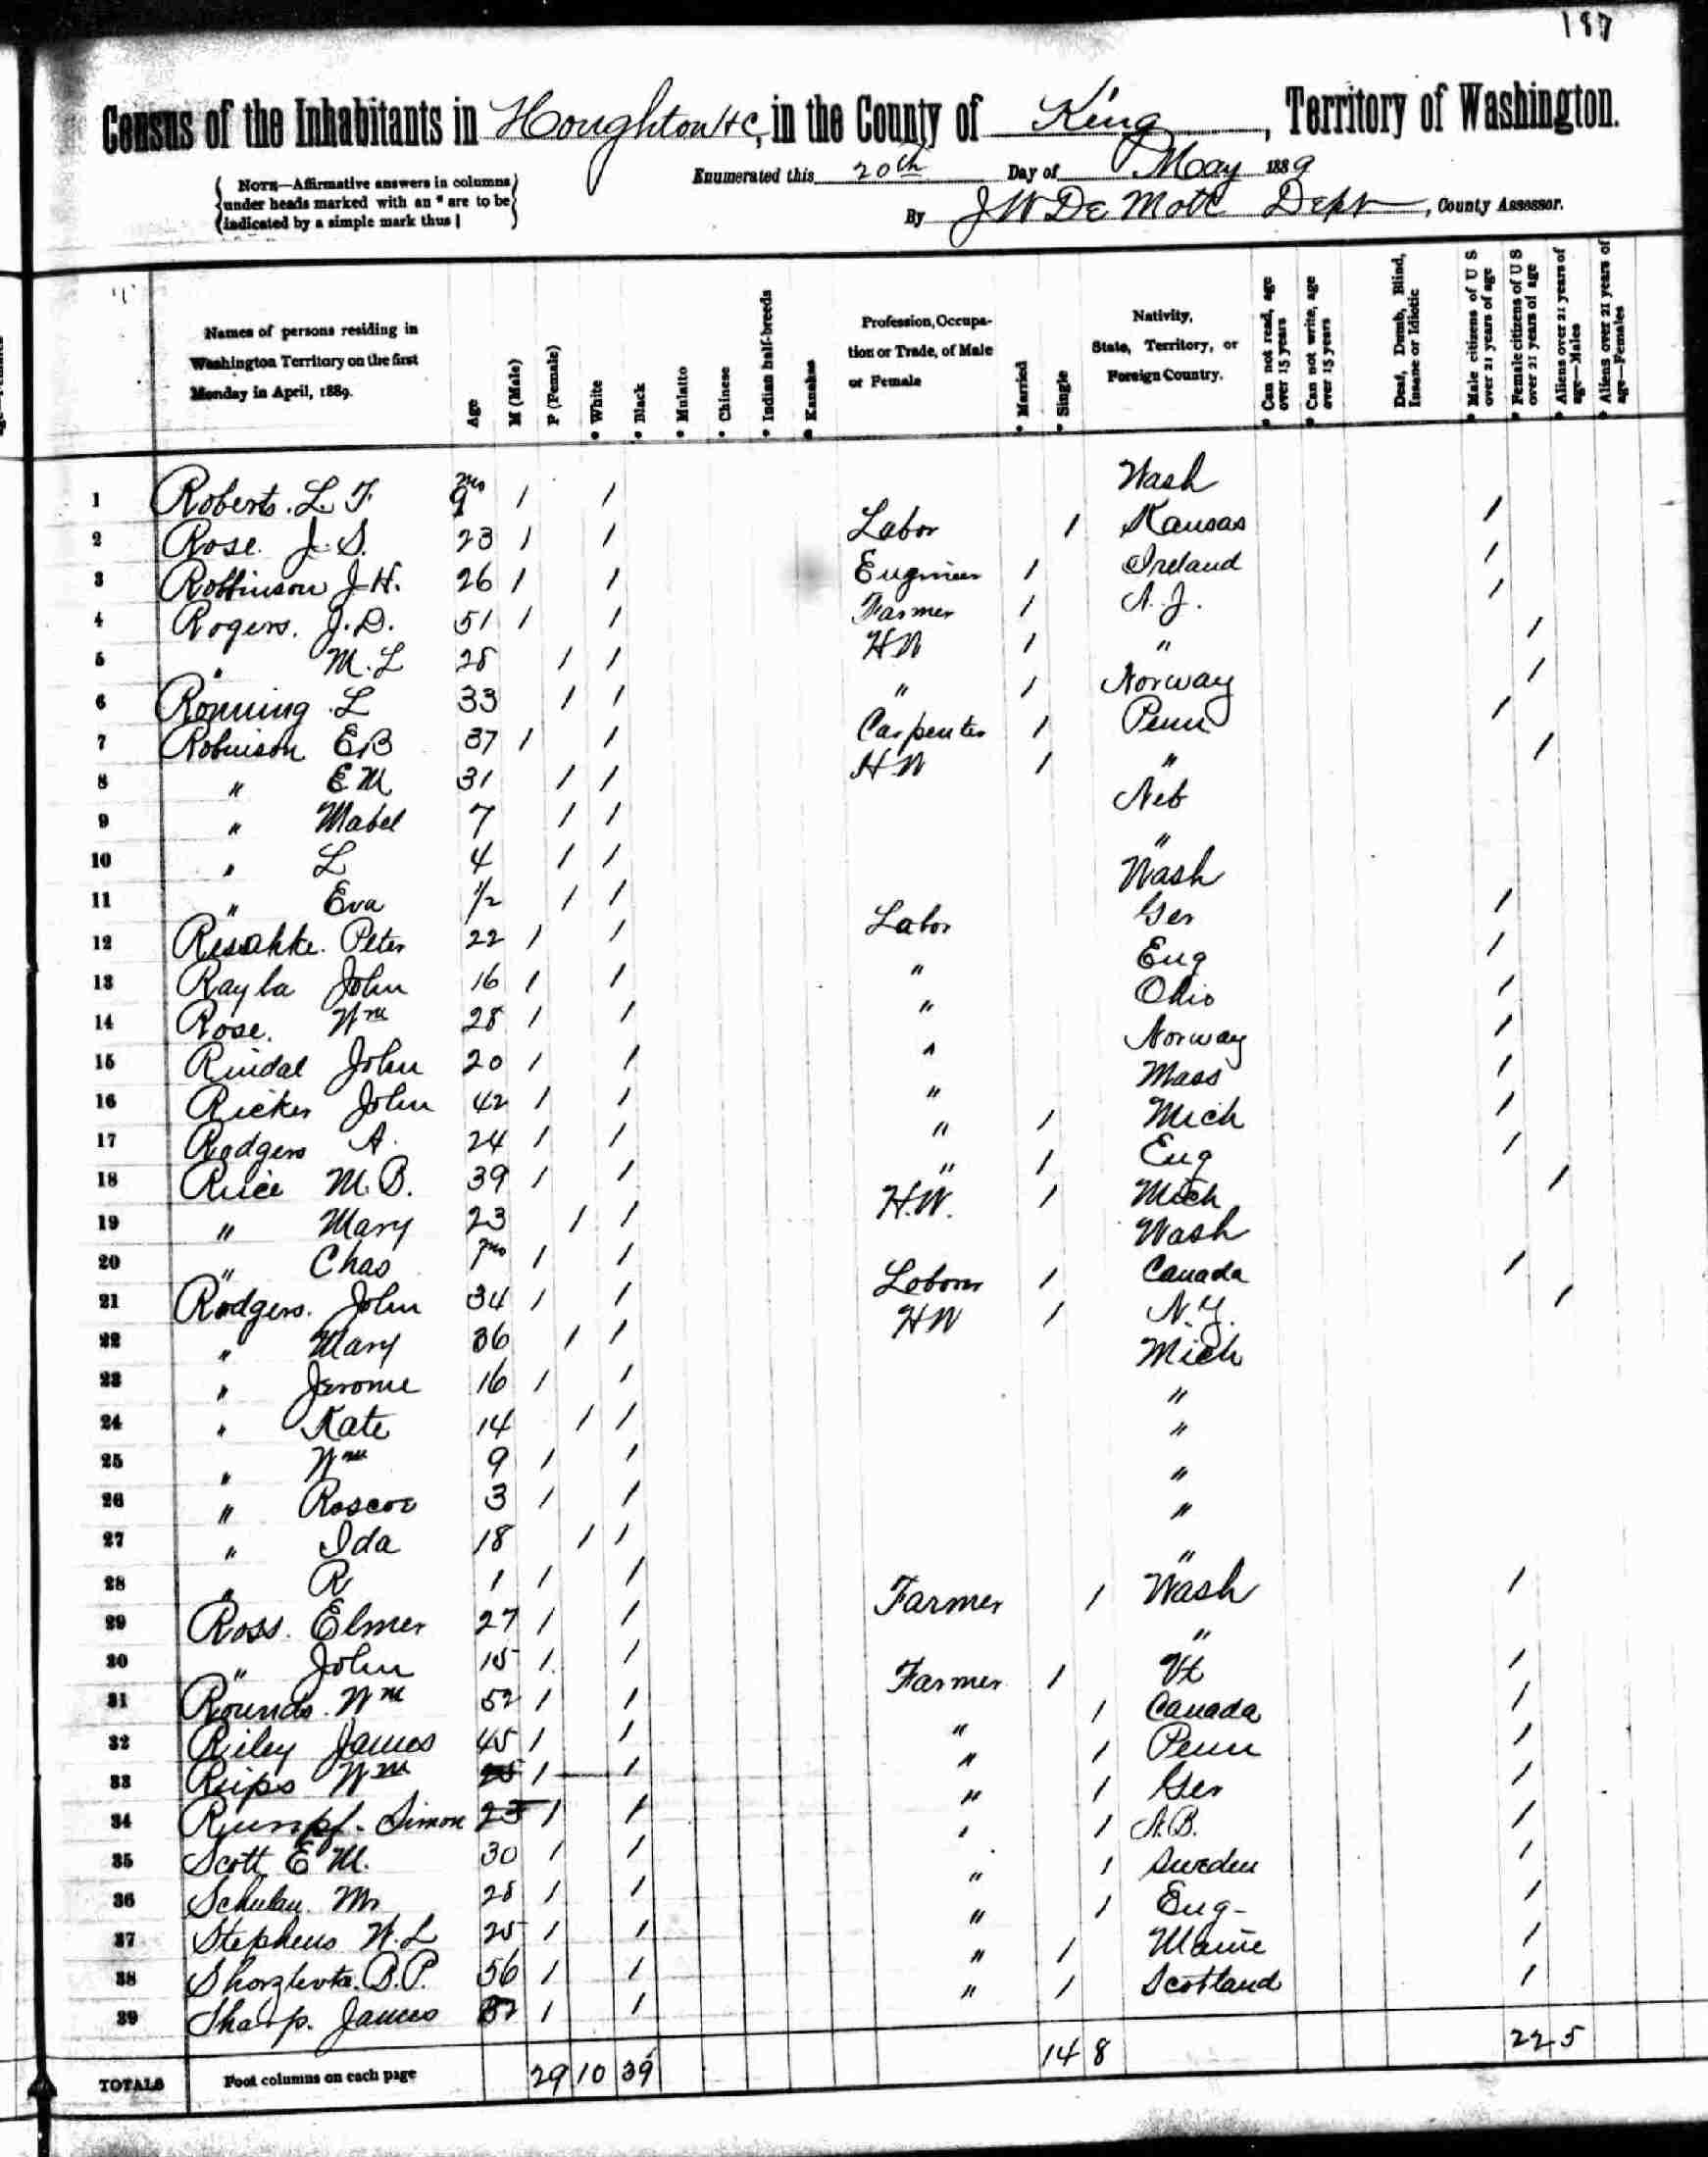 187
Census of the Inhabitants in Houghton +c, in the County of King, Territory of Washington.
Enumerated this 20th Day of May 1889
By J W De Mott Dept, County Assessor.
NOTE—Affirmative answers in columns
under heads marked with an * are to be
indicated by a simple mark thus |
Names of persons residing in Washington Territory on the first Monday in April, 1889. Age M (Male) F (Female) * White * Black * Mulatto * Chinese * Indian half-breeds * Kanakas Profession, Occupation or Trade, of Male or Female * Married * Single Nativity, State, Territory, or Foreign Country. * Can not read, age over 15 years * Can not write, age over 15 years Deaf, Dumb, Blind, Insane or Idiotic * Male citizens of U S over 21 years of age * Female citizens of U S over 21 years of age * Aliens over 21 years of age—Males * Aliens over 21 years of age—Females
1 Roberts. L. F 9 mo 1 1 Wash
2 Rose. J. S. 23 1 1 Labor 1 Kansas 1
3 Robinson J H. 26 1 1 Engineer 1 Ireland 1
4 Rogers. J. D. 51 1 1 Farmer 1 N. J. 1
5 " M. L 28 1 1 HW 1 " 1
6 Ronning. L 33 1 1 " 1 Norway 1
7 Robinson E B 37 1 1 Carpenter 1 Penn 1
8 " E M 31 1 1 HW 1 " 1
9 " Mabel 7 1 1 Neb
10 " L 4 1 1 "
11 " Eva 1/2 1 1 Wash
12 Peter 22 1 1 Labor Ger 1
13 Rayla John 16 1 1 " Eng 1
14 Rose. Wm 28 1 1 " Ohio 1
15 Rindal John 20 1 1 " Norway 1
16 Ricker John 42 1 1 " Mass 1
17 Rodgers A. 24 1 1 " 1 Mich 1
18 Rice M. B. 39 1 1 " 1 Eng 1
19 " Mary 23 1 1 H.W. 1 Mich 1
20 " Chas 7 mo 1 1 Wash
21 Rodgers. John 34 1 1 Laborer 1 Canada 1
22 " Mary 36 1 1 HW 1 N.Y. 1
23 " Jerome 16 1 1 Mich
24 " Kate 14 1 1 "
25 " Wm 9 1 1 "
26 " Roscoe 3 1 1 "
27 " Ida 18 1 1 "
28 " R 1 1 1 "
29 Ross. Elmer 27 1 1 Farmer 1 Wash 1
30 " John 15 1 1 "
31 Rounds. Wm 52 1 1 Farmer 1 Vt 1
32 Riley James 45 1 1 " 1 Canada 1
33 Rips Wm 25 1 1 " 1 Penn 1
34 Rumpf. Simon 25 1 1 " 1 Ger 1
35 Scott E M. 30 1 1 " 1 N.B. 1
36 Mr 28 1 1 " 1 Sweden 1
37 Stephens W. L 25 1 1 " 1 Eng- 1
38 B. P. 56 1 1 " 1 Maine 1
39 Sharp. James 52 1 1 " 1 Scotland 1
TOTALS Foot columns on each page 29 10 39 14 8 22 5